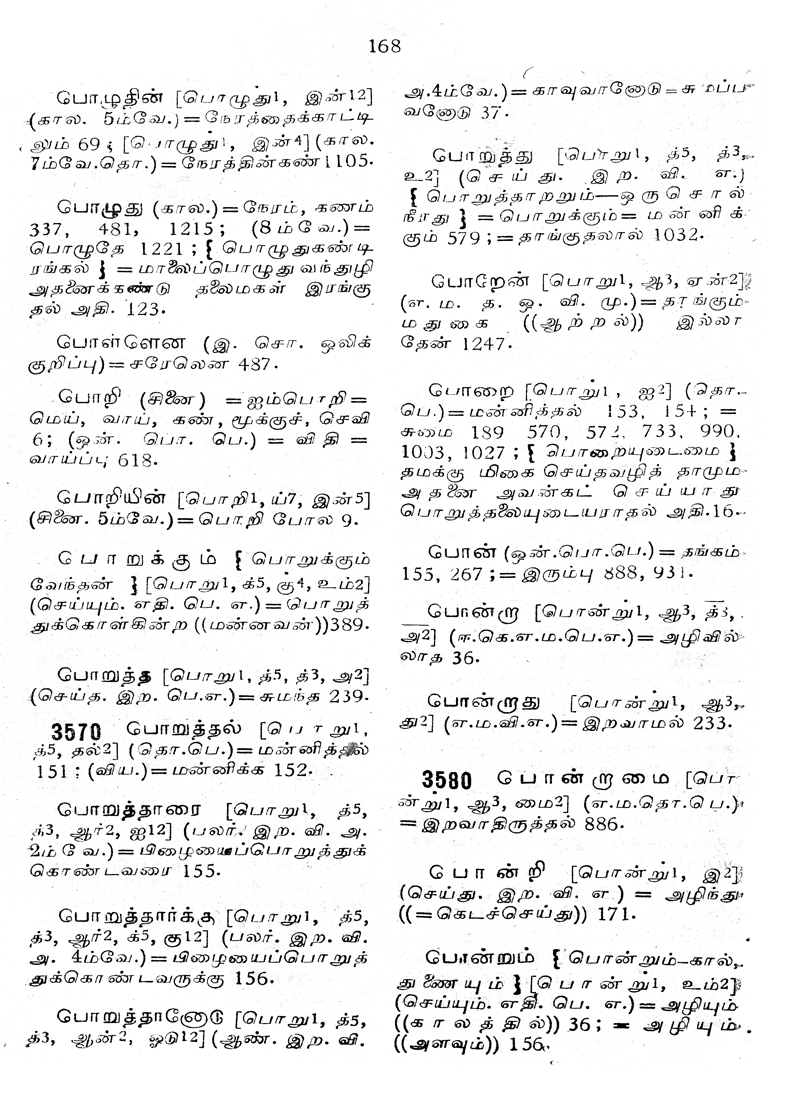 168
பொழுதின் [பொழுது1, இன்12]
(கால. 5ம்வே.)=நேரத்தைக்காட்டி
லும் 69 ; [பொழுது1, இன்4] (கால.
7ம்வே.தொ.)=நேரத்தின்கண் 1105.
பொழுது (கால.)=நேரம், கணம்
337, 481, 1215; (8ம்வே.)=
பொழுதே 1221 ; { பொழுதுகண்டி
ரங்கல் } =மாலைப்பொழுது வந்துழி
அதனைக்கண்டு தலைமகள் இரங்கு
தல் அதி. 123.
பொள்ளென (இ. சொ. ஒலிக்
குறிப்பு)=சரேலென 487.
பொறி (சினை) =ஐம்பொறி=
மெய், வாய், கண், மூக்குச், செவி
6; (ஒன். பொ. பெ.) = விதி =
வாய்ப்பு 618.
பொறியின் [பொறி1, ய்7, இன்5]
(சினை. 5ம்வே.)=பொறி போல 9.
பொறுக்கும் { பொறுக்கும்
வேந்தன் } [பொறு1, க்5, கு4, உம்2]
(செய்யும். எதி. பெ. எ.)=பொறுத்
துக்கொள்கின்ற ((மன்னவன்))389.
பொறுத்த [பொறு1, த்5, த்3, அ2]
(செய்த. இற. பெ.எ.)=சுமந்த 239.
3570 பொறுத்தல் [பொறு1,
த்5, தல்2] (தொ.பெ.)=மன்னித்தல்
151 ; (விய.)=மன்னிக்க 152.
பொறுத்தாரை [பொறு1, த்5,
த்3, ஆர்2, ஐ12] (பலர். இற. வி. அ.
2ம்வே.)=பிழையைப்பொறுத்துக்
கொண்டவரை 155.
பொறுத்தார்க்கு [பொறு1, த்5,
த்3, ஆர்2, க்5, கு12] (பலர். இற. வி.
அ. 4ம்வே.)=பிழையைப்பொறுத்
துக்கொண்டவருக்கு 156.
பொறுத்தானோடு [பொறு1, த்5,
த்3, ஆன்2, ஓடு12] (ஆண். இற. வி.
அ.4ம்வே.)=காவுவானோடு=சுமப்ப
வனோடு 37.
பொறுத்து [பொறு1, த்5, த்3,
உ2] (செய்து. இற. வி. எ.)
{ பொறுத்தாற்றும்—ஒருசொல்
நீரது } =பொறுக்கும்= மன்னிக்
கும் 579 ;=தாங்குதலால் 1032.
பொறேன் [பொறு1, ஆ3, ஏன்2]
(எ. ம. த. ஒ. வி. மு.)=தாங்கும்
மதுகை ((ஆற்றல்)) இல்லா
தேன் 1247.
பொறை [பொறு1, ஐ2] (தொ.
பெ.)=மன்னித்தல் 153, 154; =
சுமை 189 570, 572, 733, 990,
1003, 1027 ; { பொறையுடைமை }
தமக்கு மிகை செய்தவழித் தாமும
அதனை அவன்கட் செய்யாது
பொறுத்தலையுடையராதல் அதி.16.
பொன் (ஒன்.பொ.பெ.)=தங்கம்
155, 267 ;=இரும்பு 888, 931.
பொன்றா [பொன்று1, ஆ3, த்3,
அ2] (ஈ.கெ.எ.ம.பெ.எ.)=அழிவில்
லாத 36.
பொன்றாது [பொன்று1, ஆ3,
து2] (எ.ம.வி.எ.)=இறவாமல் 233.
3580 பொன்றாமை [பொ
ன்று1, ஆ3, மை2] (எ.ம.தொ.பெ.)
=இறவாதிருத்தல் 886.
பொன்றி [பொன்று1, இ2]
(செய்து. இற. வி. எ ) = அழிந்து
((=கெடச்செய்து)) 171.
பொன்றும் { பொன்றும்-கால்,
துணையும் } [பொன்று1, உம்2]
(செய்யும். எதி. பெ. எ.)=அழியும்
((காலத்தில்)) 36 ; = அழியும்
((அளவும்)) 156.